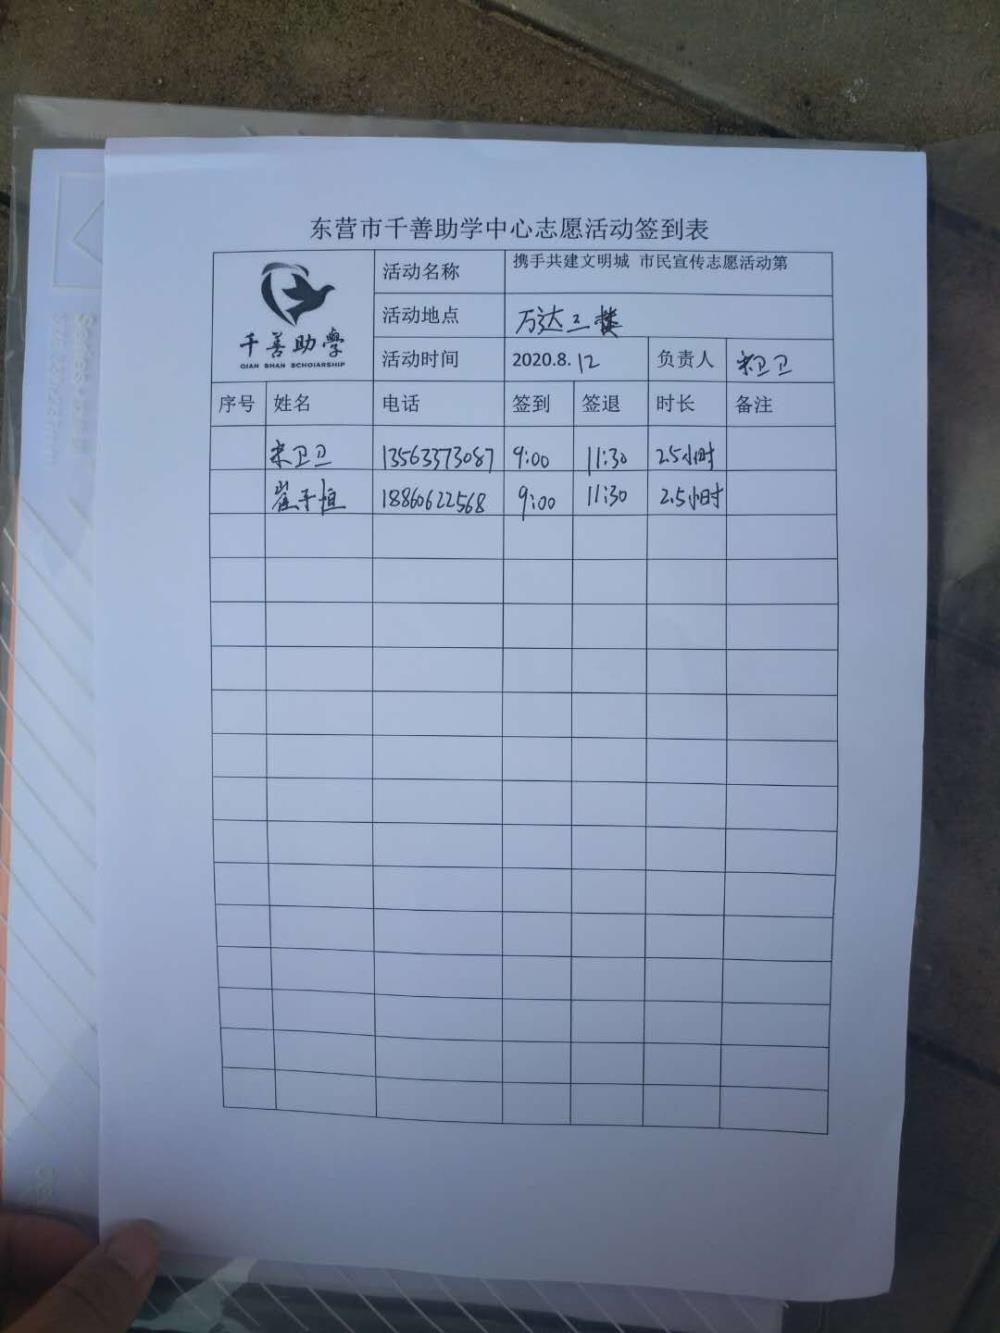 东营市千善助学中心志愿活动签到表
千善助學
QIAN SHAN SCHOIARSHIP
活动名称 携手共建文明城 市民宣传志愿活动第
活动地点 万达三楼
活动时间 2020.8.12 负责人 宋卫卫
序号 姓名 电话 签到 签退 时长 备注
宋卫卫 13563373087 9:00 11:30 2.5小时
崔子恒 18860622568 9:00 11:30 2.5小时